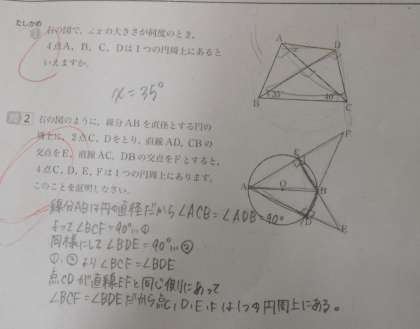 たしかめ
1 右の図で、∠xの大きさが何度のとき、
4点A、B、C、Dは1つの円周上にあると
いえますか。
x=35°
A
x
D
35°
40°
B
C
例2 右の図のように、線分ABを直径とする円の
周上に、2点C、Dをとり、直線AD、CBの
交点をE、直線AC、DBの交点をFとすると、
4点C、D、E、Fは1つの円周上にあります。
このことを証明しなさい。
F
A
O
B
D
E
線分ABは円の直径だから∠ACB=∠ADB=90°
よって∠BCF=90°…①
同様にして∠BDE=90°…②
①、②より∠BCF=∠BDE
点CDが直線EFと同じ側にあって
∠BCF=∠BDEだから点C、D、E、Fは1つの円周上にある。